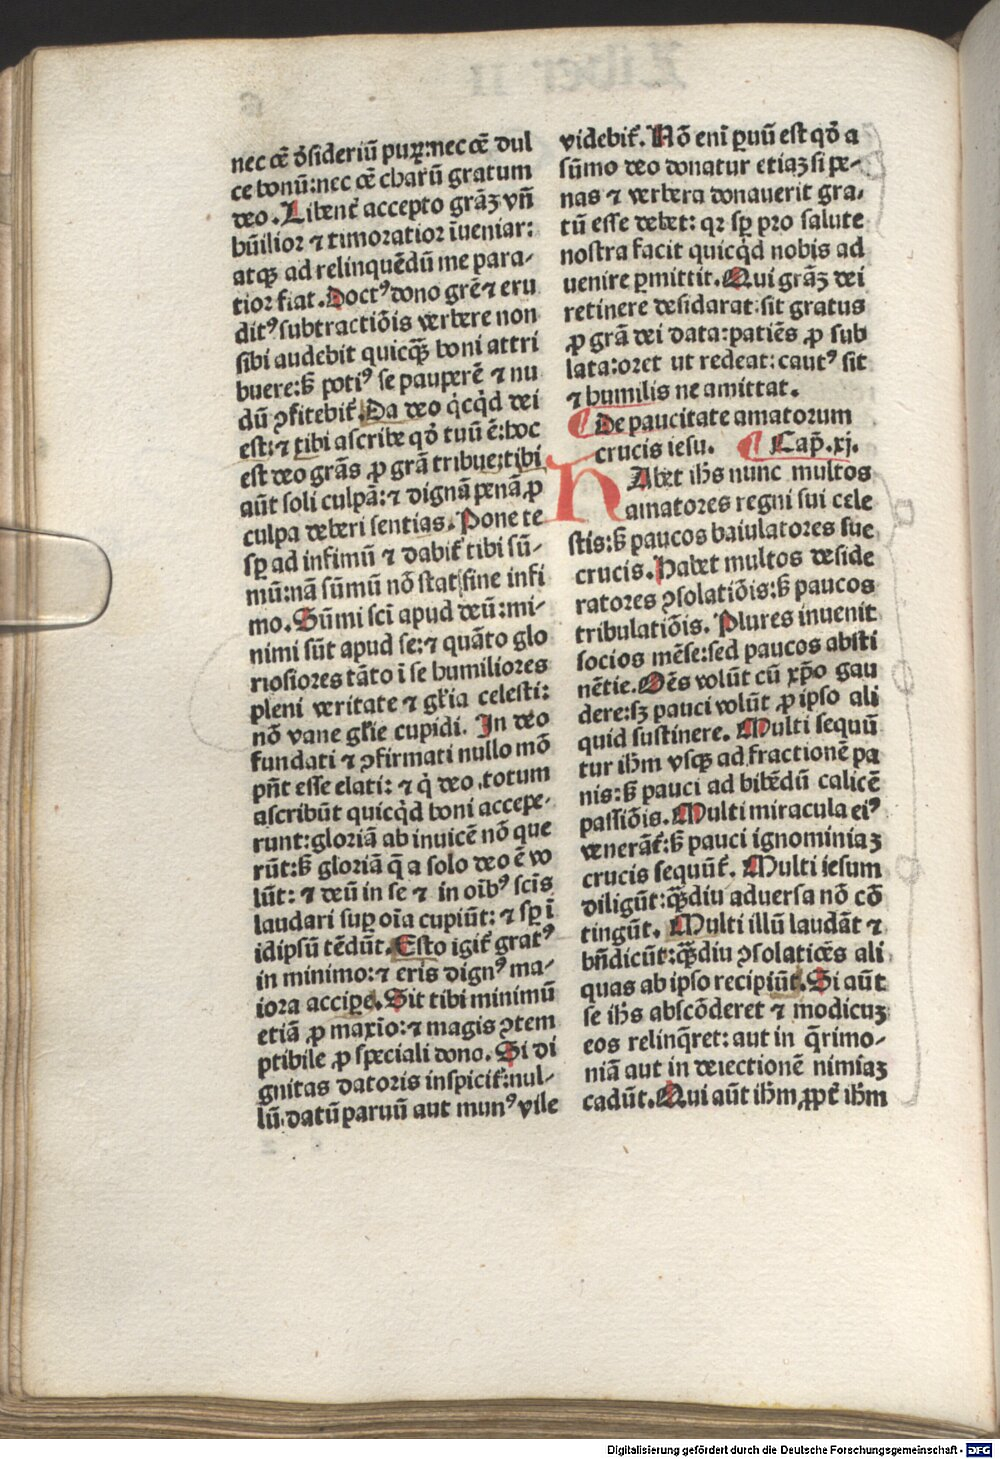 nec oē ꝺ̄sideriū puꝝ: nec oē dul
ce bonū: nec oē charū gratum
deo. Libent̄ accepto grāꝫ vñ
hūilior ⁊ timoratior īueniar:
atqꝫ ad relinquēdū me para-
tior fiat. Doctꝰ dono grē ⁊ eru
ditꝰ subtractiōis verbere non
sibi audebit quicqꝫ boni attri
buere: sꝫ potiꝰ se pauperē ⁊ nu
dū ꝯfitebit̄. Da deo q̇cq̇d dei
est: ⁊ tibi ascribe qḋ tuū ē: hoc
est deo grās ꝓ grā tribue: tibi
aūt soli culpā: ⁊ dignā penā ꝓ
culpa deberi sentias. Pone te
sꝑ ad infimū ⁊ dabit̄ tibi sū-
mū: nā sūmū nō stat sine infi
mo. Sūmi scī apud deū: mi-
nimi sūt apud se: ⁊ quāto glo
riosiores tāto ī se humiliores
pleni veritate ⁊ gl̄ia celesti:
nō vane gl̄ie cupidi. In deo
fundati ⁊ ꝯfirmati nullo mō
pn̄t esse elati: ⁊ q̇ deo totum
ascribūt quicq̇d boni accepe-
runt: gloriā ab inuicē nō que
rūt: sꝫ gloriā q̄ a solo deo ē vo
lūt: ⁊ deū in se ⁊ in oībꝰ scīs
laudari suꝑ oīa cupiūt: ⁊ sꝑ ī
idipsū tēdūt. Esto igit̄ gratꝰ
in minimo: ⁊ eris dignꝰ ma-
iora accipe. Sit tibi minimū
etiā ꝓ maxīo: ⁊ magis ꝯtem
ptibile ꝓ speciali dono. Si di
gnitas datoris inspicit̄: nul-
lū datū paruū aut munꝰ vile
videbit̄. Nō enī ꝑuū est qḋ a
sūmo deo donatur etiaꝫ si pe-
nas ⁊ verbera donauerit gra-
tū esse debet: qꝛ sꝑ pro salute
nostra facit quicq̇d nobis ad
uenire ꝑmittit. Qui grāꝫ dei
retinere desidarat: sit gratus
ꝓ grā dei data: patiēs ꝓ sub
lata: oret ut redeat: cautꝰ sit
⁊ humilis ne amittat.
¶ De paucitate amatorum
crucis iesu. ¶ Cap̄. xj.
HAbet ih̄s nunc multos
amatores regni sui cele
stis: sꝫ paucos baiulatores sue
crucis. Habet multos deside
ratores ꝯsolatiōis: sꝫ paucos
tribulatiōis. Plures inuenit
socios mēse: sed paucos absti
nētie. Oēs volūt cū xp̄o gau
dere: sꝫ pauci volūt ꝓ ipso ali
quid sustinere. Multi sequū
tur ih̄m vsqꝫ ad fractionē pa
nis: sꝫ pauci ad bibēdū calicē
passiōis. Multi miracula eiꝰ
venerāt̄: sꝫ pauci ignominiaꝫ
crucis sequūt̄. Multi iesum
diligūt: qꝫdiu aduersa nō cō
tingūt. Multi illū laudāt ⁊
bn̄dicūt: qꝫdiu ꝯsolatiōes ali
quas ab ipso recipiūt. Si aūt
se ih̄s abscōderet ⁊ modicuꝫ
eos relinq̄ret: aut in q̄rimo-
niā aut in deiectionē nimiaꝫ
cadūt. Qui aūt ih̄m ꝓpt̄ ih̄m
Digitalisierung gefördert durch die Deutsche Forschungsgemeinschaft - DFG